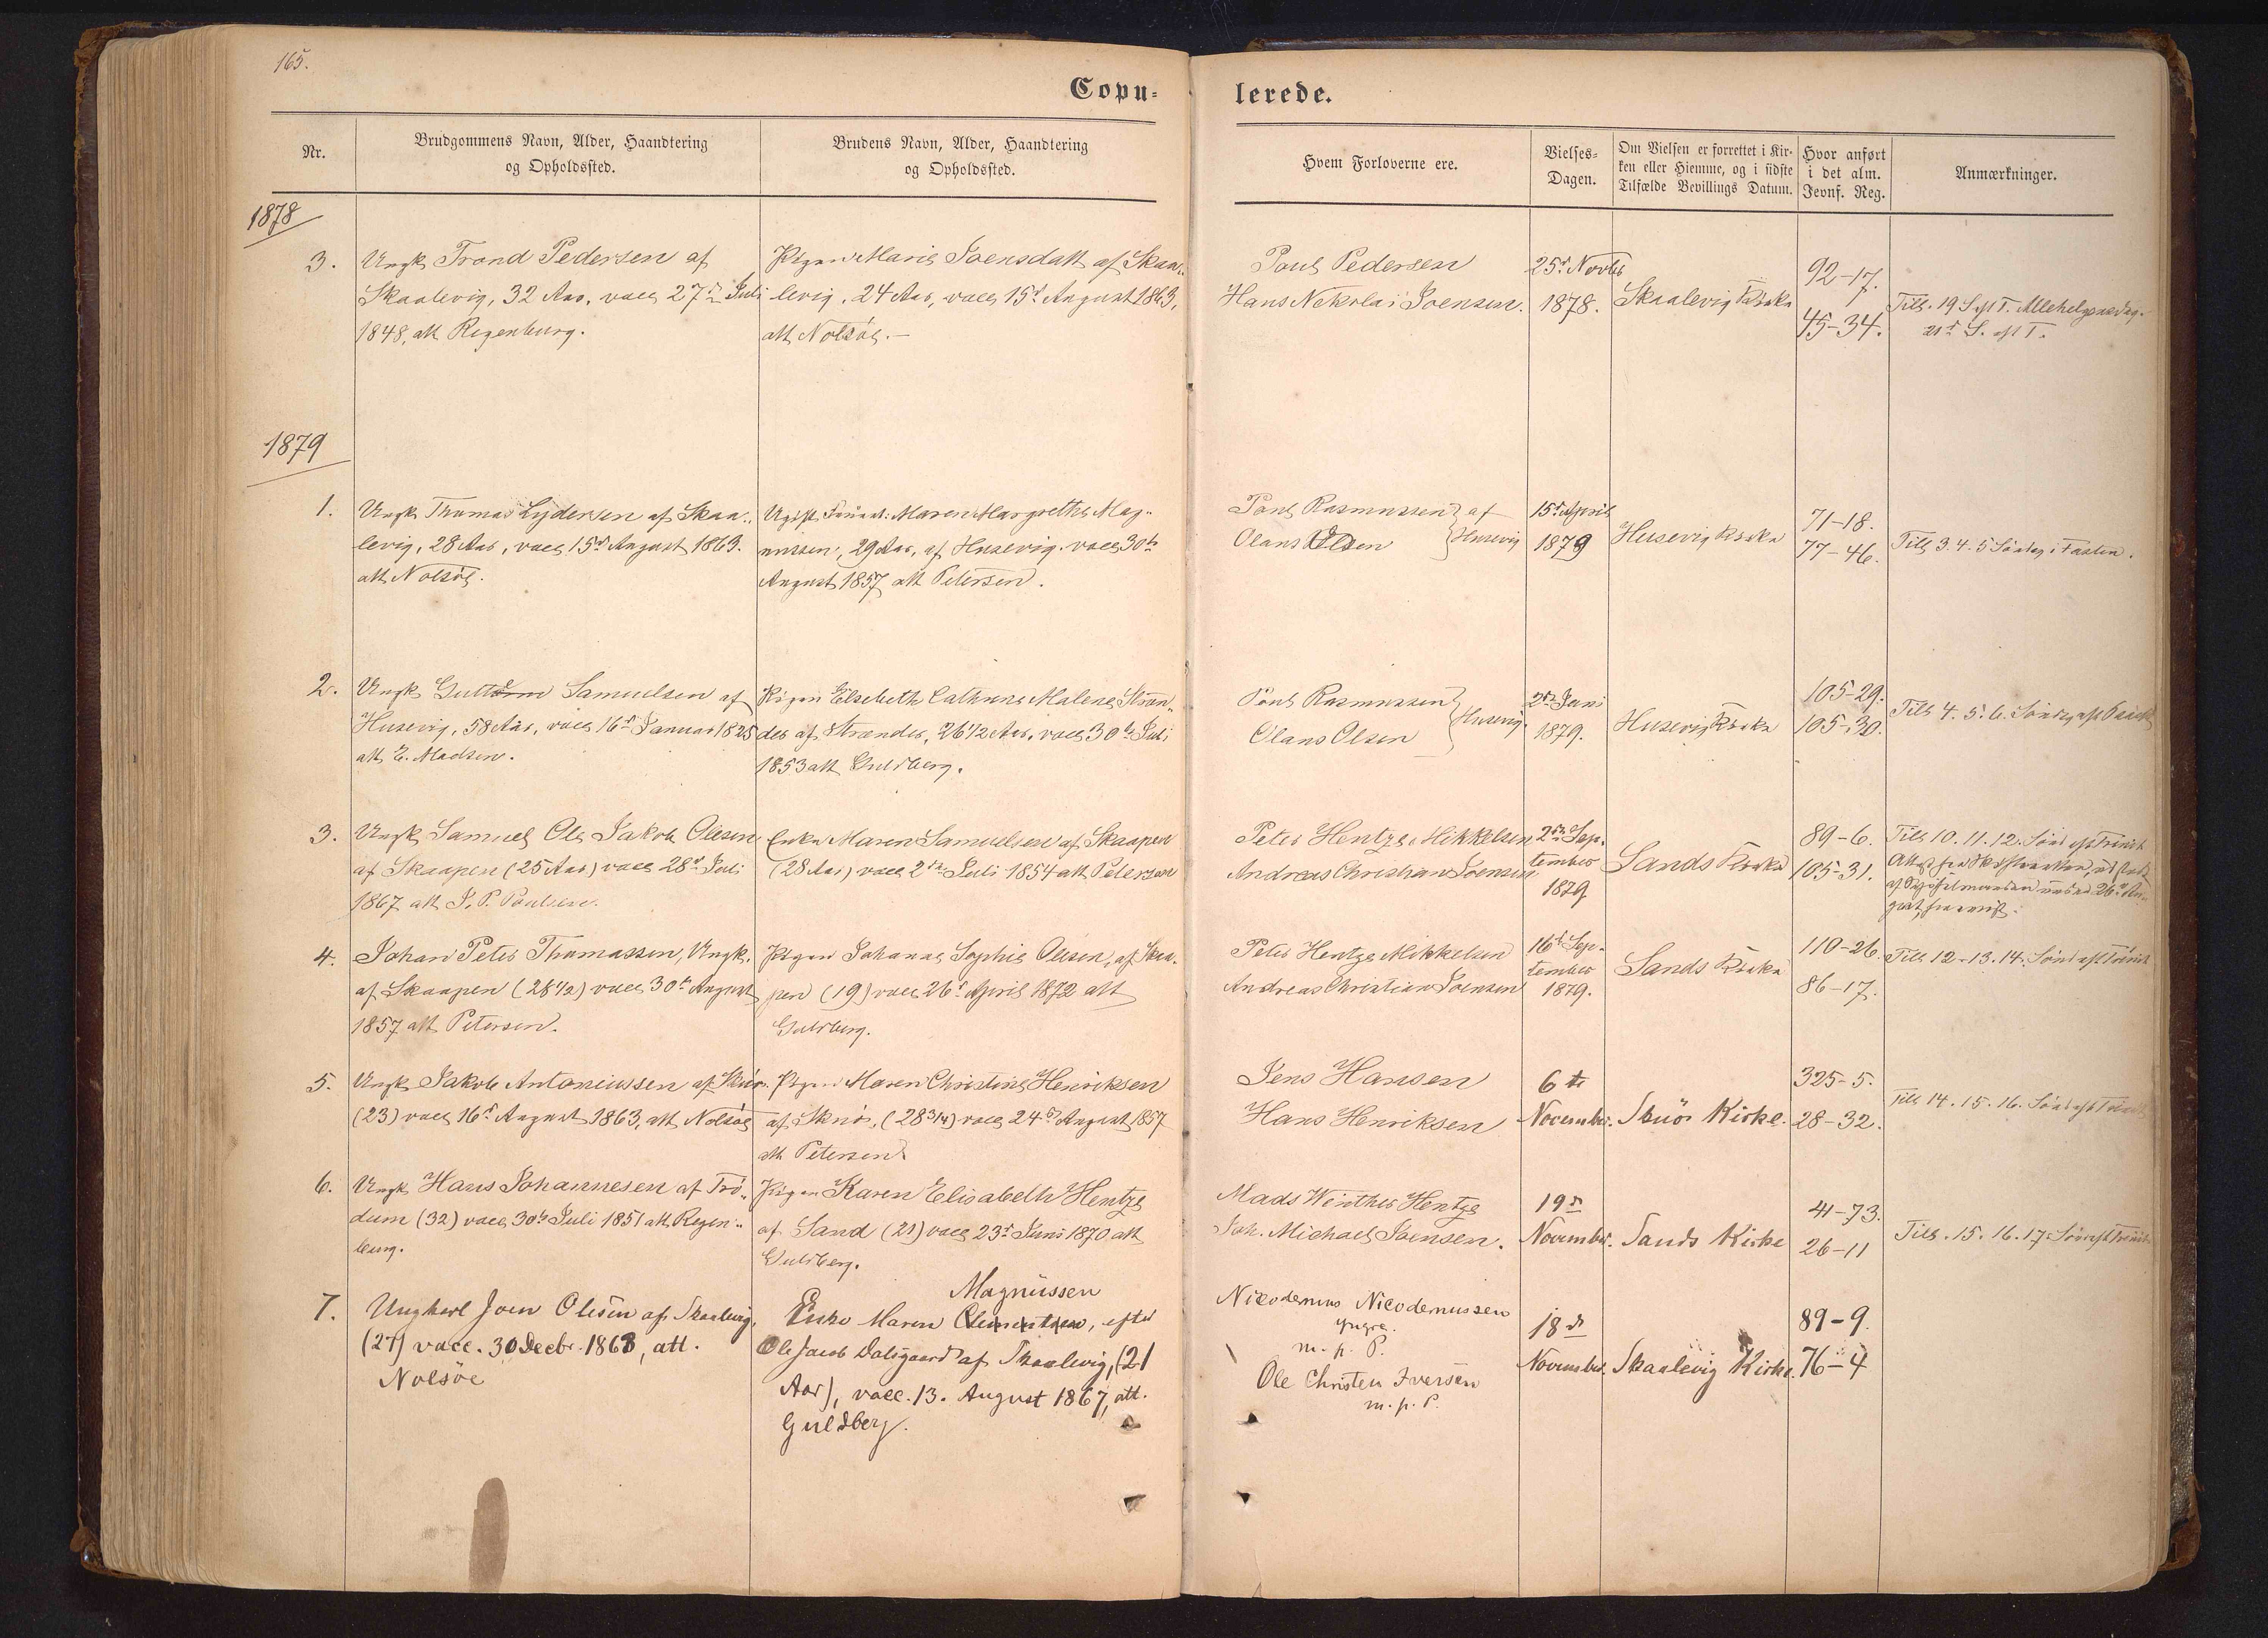 165.
Copu-
lerede.
Nr.
Brudgommens Navn, Alder, Haandtering
og Opholdssted.
Brudens Navn, Alder, Haandtering
og Opholdssted.
Hvem Forloverne ere.
Vielses-
Dagen.
Om Vielsen er forrettet i Kir-
ken eller Hiemme, og i sidste
Tilfælde Bevillings Datum.
Hvor anført
i det alm.
Jevnf. Reg.
Anmærkninger.
1878
3.
Ungk Trond Pedersen af
Skaalevig, 32 Aar, vacc 27de Juli
1848, att Regenburg.
Pigen Marie Joensdatt af Skaa-
levig, 24 Aar, vacc 15d August 1863,
att Nolsöe.
Poul Pedersen
Hans Nekolai Joensen.
25d Novbr
1878.
Skaalevig Kirke
92-17.
45-34.
Till. 19 S. eft T. Allehelgensdag.
21d S. eft T.
1879
1.
Ungk Thomas Lydersen af Skaa-
levig, 28 Aar, vacc 15d August 1863.
att Nolsöe.
Ugift Maren Margrethe Mag-
nussen, 29 Aar, af Husevig. vacc 30te
August 1857 att Petersen.
Poul Rasmussen
Olaus Olsen
af
Husevig
15d April
1879
Husevig Kirke
71-18.
77-46.
Till 3. 4. 5 Söndag i Fasten.
2.
Ungk Guttorm Samuelsen af
Husevig, 58 Aar, vacc 16d Januar 1825
att E. Madsen.
Pigen Elsebeth Cathrine Malene Stran-
der af Strander, 26 1/2 Aar, vacc 30te Juli
1853 att Guldberg.
Poul Rasmussen
Olaus Olsen
Husevig.
2den Juni
1879.
Husevig Kirke
105-29.
105-30.
Till 4. 5. 6. Söndag eft Paask
3.
Ungk Samuel Ole Jakob Olesen
af Skaapen (25 Aar) vacc 28d Juli
1867 att J. P. Poulsen.
Enke Maren Samuelsen af Skaapen
(28 Aar) vacc 2den Juli 1854 att Petersen
Peter Hentze Mikkelsen
Andreas Christian Joensen
2den Sep-
tember
1879
Sands Kirke
89-6.
105-31.
Till 10. 11. 12. Sönd eft Trinit
Att fra Skifteretten, udstedt
af Sysselmanden under 26d Au-
gust, fremvist.
4.
Johan Peter Thomassen, Ungk.
af Skaapen (28 1/2) vacc 30te August
1857 att Petersen.
Pigen Johanne Sophie Olesen, af Skaa-
pen (19) vacc 26d April 1872 att
Guldberg.
Peter Hentze Mikkelsen
Andreas Christian Joensen
16d Sep-
tember
1879.
Sands Kirke
110-26.
86-17.
Till 12-13. 14. Sönd eft Trinit
5.
Ungk Jakob Antoniussen af Skuö.
(23) vacc 16d August 1863, att Nolsöe
Pigen Maren Christine Henriksen
af Skuö, (28 3/4) vacc 24de August 1857
att Petersen.
Jens Hansen
Hans Henriksen
6te
November.
Skuö Kirke.
325-5.
28-32.
Till 14. 15. 16. Sönd eft Trinit
6.
Ungk Hans Johannesen af Trö-
dum (32) vacc 30te Juli 1851 att Regen-
burg.
Pigen Karen Elisabeth Hentze
af Sand (21) vacc 23d Juni 1870 att
Guldberg.
Mads Winther Hentze
Joh. Michael Joensen.
19de
November.
Sands Kirke
41-73.
26-11
Till. 15. 16. 17. Sönd eft Trinit
7.
Ungkarl Joen Olesen af Skaalevig,
(27) vacc. 30 Decbr. 1868, att.
Nolsöe
Magnussen
Enke Maren Clementsen, efter
Ole Jacob Dalsgaard af Skaalevig, (21
Aar), vacc. 13. August 1867, att.
Guldberg.
Nicodemus Nicodemussen
yngre.
m. p. P.
Ole Christen Iversen
m. p. P.
18d
November.
Skaalevig Kirke.
89-9.
76-4